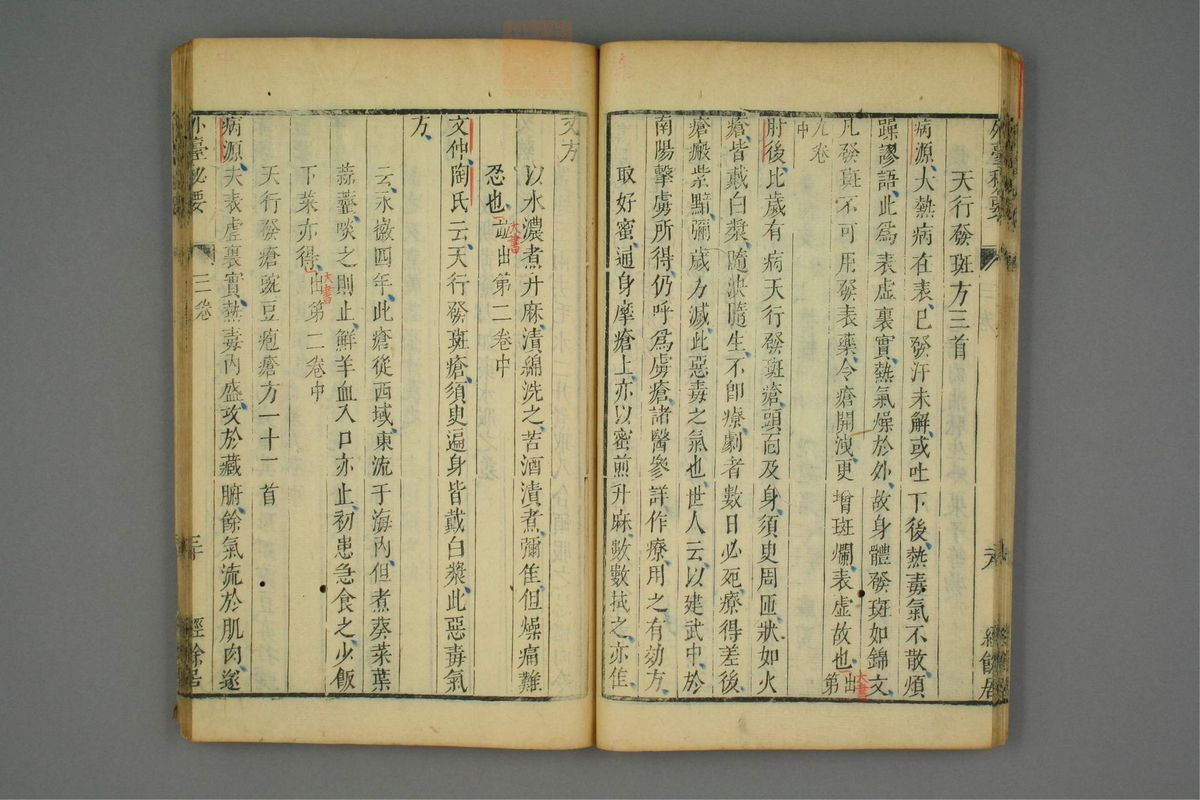 外臺秘要
天行發斑方三首
病源大熱病在表已發汗未解或吐下後熱毒氣不散煩
躁謬語此爲表虛裏實熱氣燥於外故身體發斑如錦文
凡發斑不可用發表藥令瘡開洩更增斑爛表虛故也出第
九卷中
大書
肘後比歲有病天行發斑瘡頭面及身須臾周匝狀如火
瘡皆戴白漿隨決隨生不卽療劇者數日必死療得差後
瘡瘢紫黯彌歲方滅此惡毒之氣也世人云以建武中於
南陽擊虜所得仍呼爲虜瘡諸醫參詳作療用之有効方
取好蜜通身摩瘡上亦以蜜煎升麻數數拭之亦佳
經餘居
又方
以水濃煮升麻漬綿洗之苦酒漬煮彌佳但燥痛難
忍也並出第二卷中
大書
文仲陶氏云天行發斑瘡須臾遍身皆戴白漿此惡毒氣
方
云永徽四年此瘡從西域東流于海內但煮葵菜葉
蒜虀啖之則止鮮羊血入口亦止初患急食之少飯
下菜亦得出第二卷中
大書
天行發瘡豌豆疱瘡方一十一首
病源夫表虛裏實熱毒內盛攻於藏腑餘氣流於肌肉遂
外臺秘要
三卷
三十
經餘居